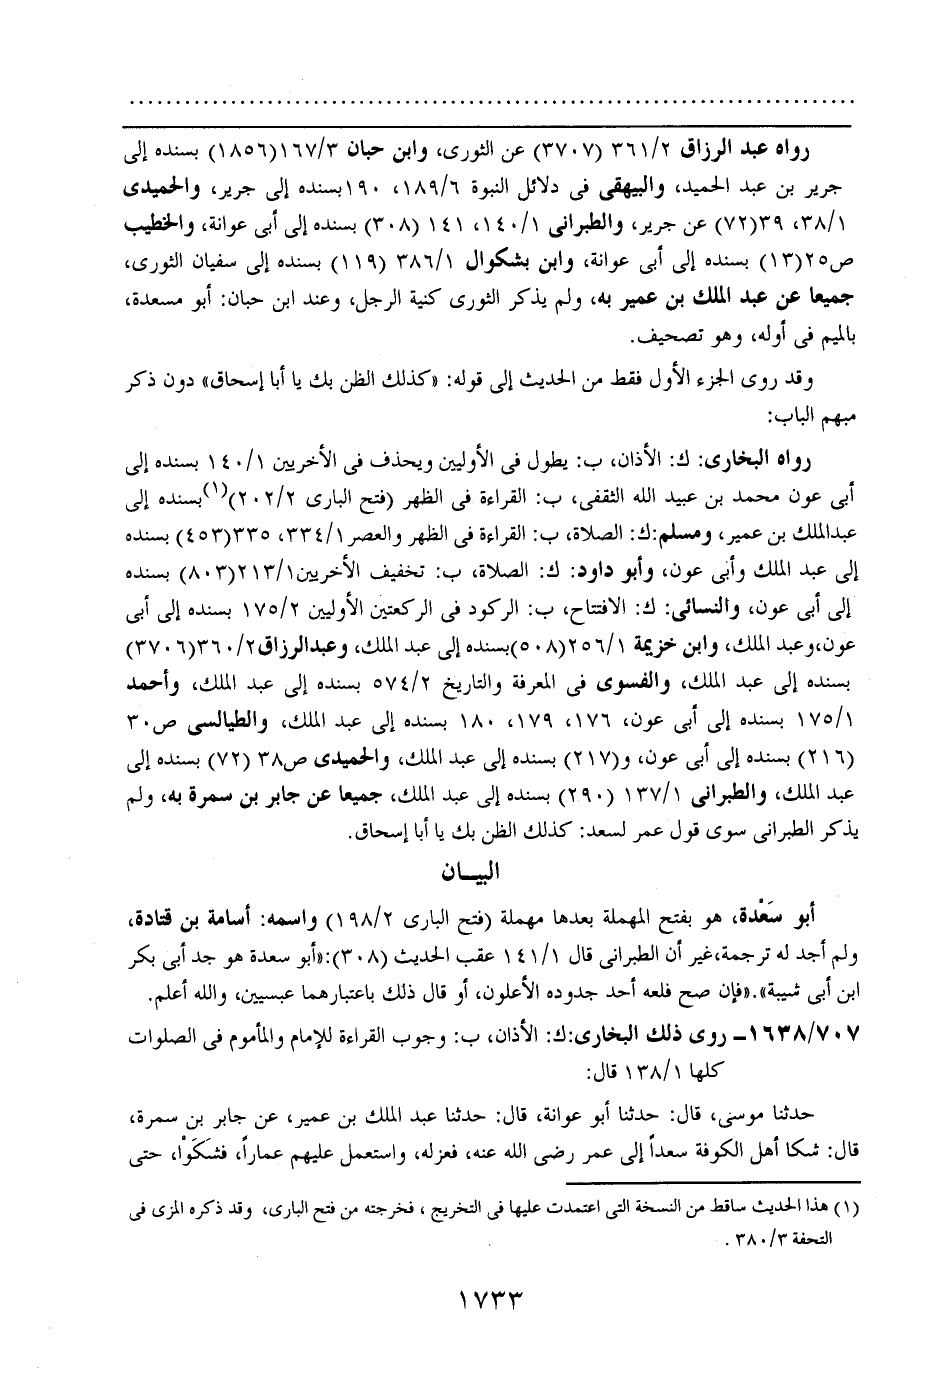 رواه عبد الرزاق ٣٦١/٢ (٣٧٠٧) عن الثورى، وابن حبان ١٦٧/٣(١٨٥٦) بسنده إلى
جرير بن عبد الحميد، والبيهقى فى دلائل النبوة ١٨٩/٦، ١٩٠بسنده إلى جرير، والحميدى
٣٨/١، ٣٩(٧٢) عن جرير، والطبرانى ١٤٠/١، ١٤١ (٣٠٨) بسنده إلى أبى عوانة، والخطيب
ص٢٥(١٣) بسنده إلى أبى عوانة، وابن بشكوال ٣٨٦/١ (١١٩) بسنده إلى سفيان الثورى،
جميعا عن عبد الملك بن عمير به، ولم يذكر الثورى كنية الرجل، وعند ابن حبان: أبو مسعدة،
بالميم فى أوله، وهو تصحيف.
وقد روى الجزء الأول فقط من الحديث إلى قوله: «كذلك الظن بك يا أبا إسحاق» دون ذكر
مبهم الباب:
رواه البخارى: ك: الأذان، ب: يطول فى الأوليين ويحذف فى الأخريين ١٤٠/١ بسنده إلى
أبى عون محمد بن عبيد الله الثقفى، ب: القراءة فى الظهر (فتح البارى ٢٠٢/٢)(١)بسنده إلى
عبدالملك بن عمير، ومسلم:ك: الصلاة، ب: القراءة فى الظهر والعصر٣٣٤/١، ٣٣٥(٤٥٣) بسنده
إلى عبد الملك وأبى عون، وأبو داود: ك: الصلاة، ب: تخفيف الأخريين٢١٣/١(٨٠٣) بسنده
إلى أبى عون، والنسائى: ك: الافتتاح، ب: الركود فى الركعتين الأوليين ١٧٥/٢ بسنده إلى أبى
عون،وعبد الملك، وابن خزيمة ٢٥٦/١(٥٠٨)بسنده إلى عبد الملك، وعبدالرزاق٣٦٠/٢(٣٧٠٦)
بسنده إلى عبد الملك، والفسوى فى المعرفة والتاريخ ٥٧٤/٢ بسنده إلى عبد الملك، وأحمد
١٧٥/١ بسنده إلى أبى عون، ١٧٦، ١٧٩، ١٨٠ بسنده إلى عبد الملك، والطيالسى ص٣٠
(٢١٦) بسنده إلى أبى عون، و(٢١٧) بسنده إلى عبد الملك، والحميدى ص٣٨ (٧٢) بسنده إلى
عبد الملك، والطبرانى ١٣٧/١ (٢٩٠) بسنده إلى عبد الملك، جميعا عن جابر بن سمرة به، ولم
يذكر الطبرانى سوى قول عمر لسعد: كذلك الظن بك يا أبا إسحاق.
البيـــان
أبو سَعْدة، هو بفتح المهملة بعدها مهملة (فتح البارى ١٩٨/٢) واسمه: أسامة بن قتادة،
ولم أجد له ترجمة،غير أن الطبرانى قال ١٤١/١ عقب الحديث (٣٠٨):«أبو سعدة هو جد أبى بكر
ابن أبى شيبة».«فإن صح فلعه أحد جدوده الأعلون، أو قال ذلك باعتبارهما عبسيين، والله أعلم.
١٦٣٨/٧٠٧ــ روى ذلك البخارى:ك: الأذان، ب: وجوب القراءة للإمام والمأموم فى الصلوات
كلها ١٣٨/١ قال:
حدثنا موسى، قال: حدثنا أبو عوانة، قال: حدثنا عبد الملك بن عمير، عن جابر بن سمرة،
قال: شكا أهل الكوفة سعداً إلى عمر رضى الله عنه، فعزله، واستعمل عليهم عماراً، فشَكَوْا، حتى
(١) هذا الحديث ساقط من النسخة التى اعتمدت عليها فى التخريج ، فخرجته من فتح البارى، وقد ذكره المزى فى
التحفة ٣٨٠/٣ .
١٧٣٣